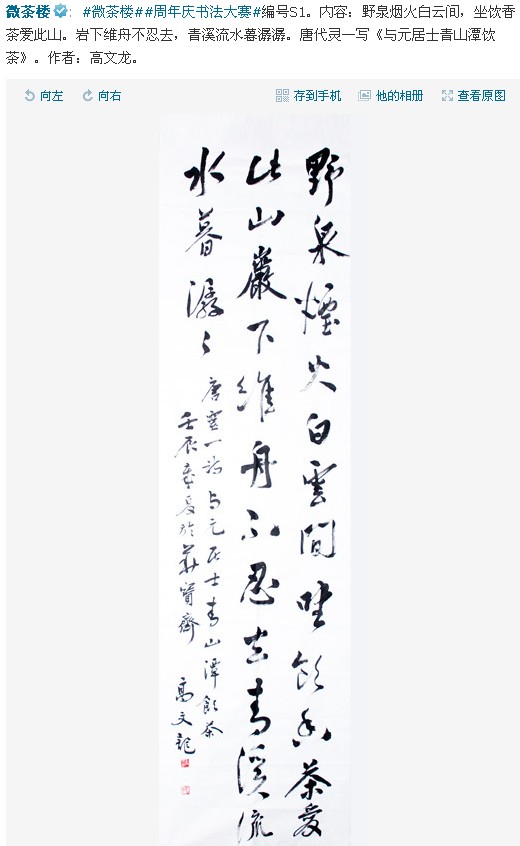 微茶楼: #微茶楼##周年庆书法大赛#编号S1。内容：野泉烟火白云间，坐饮香
茶爱此山。岩下维舟不忍去，青溪流水暮潺潺。唐代灵一写《与元居士青山潭饮
茶》。作者：高文龙。
向左 向右 存到手机 他的相册 查看原图
野泉煙火白雲間坐飲香茶愛
此山巖下維舟不忍去青溪流
水暮潺々
唐靈一詩与元居士青山潭飲茶
壬辰季夏於華寶齋
高文龍